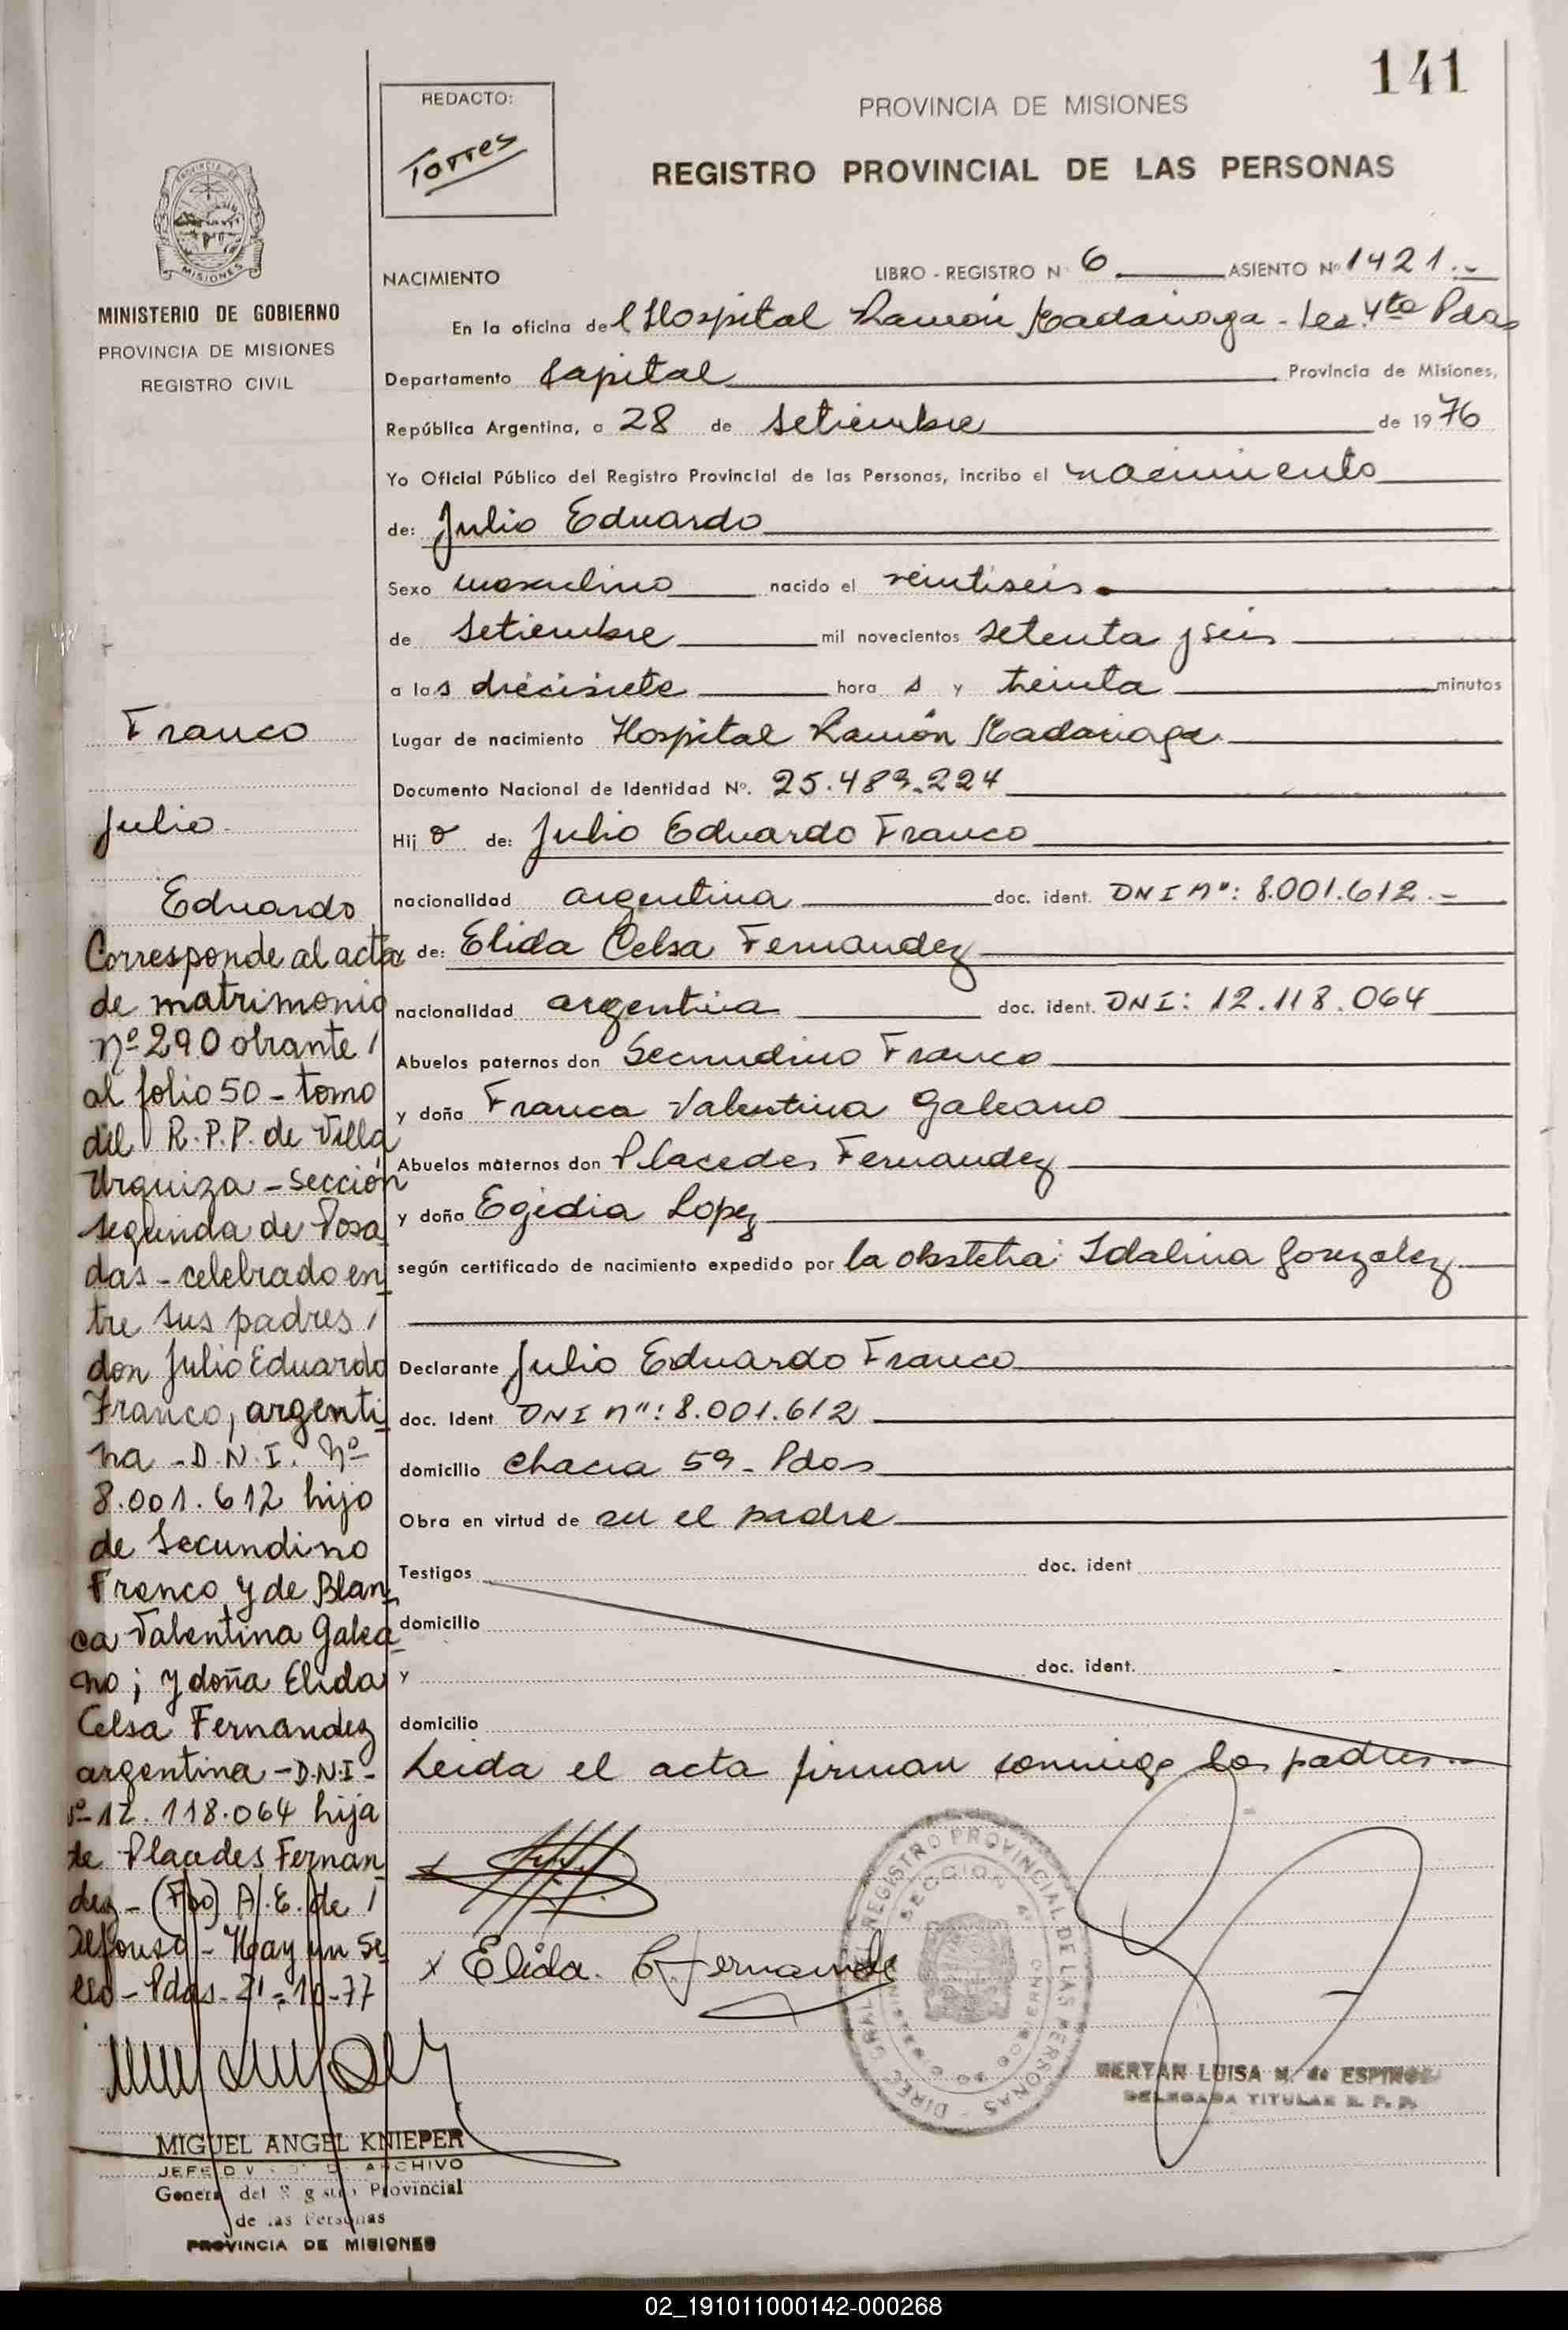 141
REDACTO:
Torres
PROVINCIA DE MISIONES
REGISTRO PROVINCIAL DE LAS PERSONAS
MISIONES
MINISTERIO DE GOBIERNO
PROVINCIA DE MISIONES
REGISTRO CIVIL
NACIMIENTO LIBRO - REGISTRO Nº 6 ASIENTO Nº 1421.-
En la oficina del Hospital Ramón Madariaga - Sec. 4ta Pdas
Departamento Capital Provincia de Misiones,
República Argentina, a 28 de Setiembre de 1976
Yo Oficial Público del Registro Provincial de las Personas, incribo el nacimiento
de: Julio Eduardo
Sexo masculino nacido el veintiseis
de Setiembre mil novecientos setenta y seis
a las diecisiete hora s y treinta minutos
Lugar de nacimiento Hospital Ramón Madariaga
Documento Nacional de Identidad Nº. 25.489.224
Hij o de: Julio Eduardo Franco
nacionalidad argentina doc. ident. DNI Nº: 8.001.612.-
de: Elida Celsa Fernandez
nacionalidad argentina doc. ident. DNI: 12.118.064
Abuelos paternos don Secundino Franco
y doña Franca Valentina Galeano
Abuelos maternos don Placedes Fernandez
y doña Egidia Lopez
según certificado de nacimiento expedido por la obstetra: Idalina Gonzalez
Declarante Julio Eduardo Franco
doc. Ident DNI nº: 8.001.612
domicilio Chacra 59 - Pdas
Obra en virtud de ser el padre
Testigos doc. ident
domicilio
y doc. ident.
domicilio
Leida el acta firman conmigo los padres.-
x Elida. C. Fernande
DIREC. GRAL. DEL REGISTRO PROVINCIAL DE LAS PERSONAS
SECCION 4ª
MERYAN LUISA M. de ESPINOZA
DELEGADA TITULAR R. P. P.
Franco
Julio
Eduardo
Corresponde al acta
de matrimonio
nº 290 obrante /
al folio 50 - tomo
del R.P.P. de Villa
Urquiza - Sección
segunda de Posa
das - celebrado en
tre sus padres /
don Julio Eduardo
Franco, argenti
na - D.N.I. Nº
8.001.612 hijo
de Secundino
Franco y de Blan
ca Valentina Galea
no; y doña Elida
Celsa Fernandez
argentina - D.N.I -
nº 12.118.064 hija
de Placedes Fernan
dez - (Fdo) A.E. de /
Alfonso - Hay un Se
llo - Pdas - 21 - 10 - 77
MIGUEL ANGEL KNIEPER
JEFE DIV ARCHIVO
General del Registro Provincial
de las Personas
PROVINCIA DE MISIONES
02_191011000142-000268